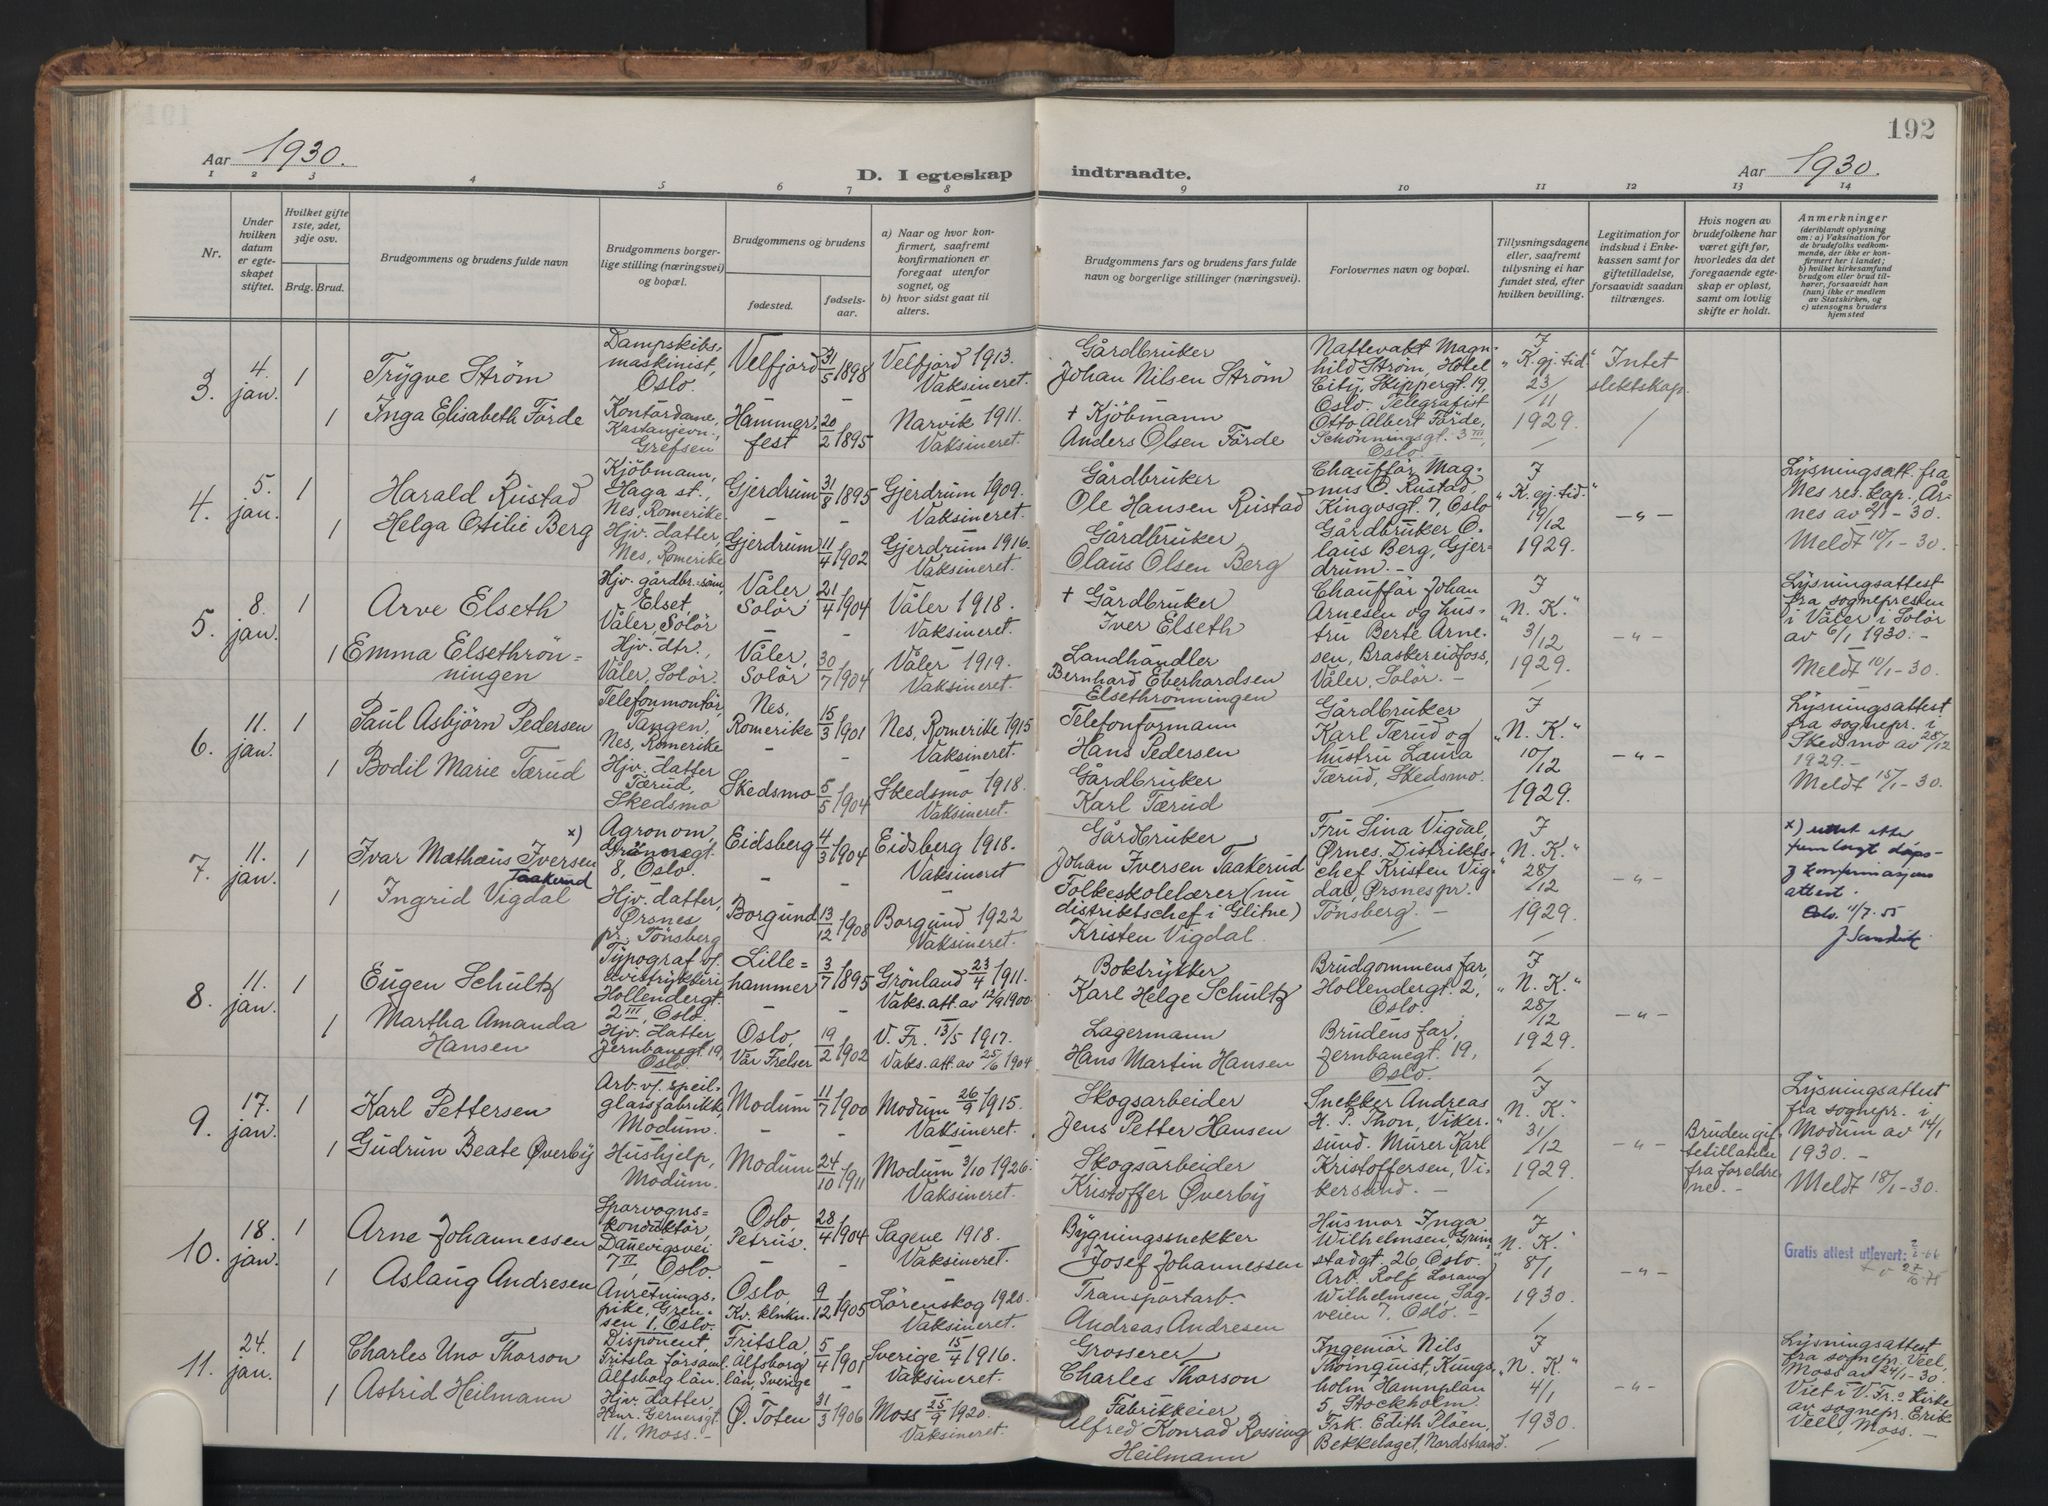 192
Aar 1930.
D. I egteskap indtraadte.
Aar 1930.
1 2 3 4 5 6 7 8 9 10 11 12 13 14
Nr.
Under hvilken datum er egteskapet stiftet.
Hvilket gifte 1ste, 2det, 3dje osv.
Brdg. Brud.
Brudgommens og brudens fulde navn
Brudgommens borgerlige stilling (næringsvei) og bopæl.
Brudgommens og brudens
fødested.
fødselsaar.
a) Naar og hvor konfirmert, saafremt konfirmationen er foregaat utenfor sognet, og
b) hvor sidst gaat til alters.
Brudgommens fars og brudens fars fulde navn og borgerlige stillinger (næringsvei).
Forlovernes navn og bopæl.
Tillysningsdagene eller, saafremt tillysning ei har fundet sted, efter hvilken bevilling.
Legitimation for indskud i Enkekassen samt for giftetilladelse, forsaavidt saadan tiltrænges.
Hvis nogen av brudefolkene har været gift før, hvorledes da det foregaaende egteskap er opløst, samt om lovlig skifte er holdt.
Anmerkninger
(deriblandt oplysning om: a) Vaksination for de brudefolks vedkommende, der ikke er konfirmert her i landet;
b) hvilket kirkesamfund brudgom eller brud tilhører, forsaavidt han (hun) ikke er medlem av Statskirken, og
c) utensogns bruders hjemsted
3. 4. jan. 1
Trygve Ström
Dampskibsmaskinist, Oslo.
Velfjord 31/5 1898
Velfjord 1913. Vaksineret.
Gårdbruker
Johan Nilsen Ström
Nattevakt Magnhild Ström, Hotel City, Skippergt. 19, Oslo. Telegrafist Otto Albert Förde, Schönningsgt. 3 III, Oslo.
I "K. gj. tid." 23/11 1929.
Intet slektskap.
1 Inga Elisabeth Förde
Kontordame, Kastanjevn., Grefsen
Hammerfest 20/2 1895
Narvik 1911. Vaksineret.
+ Kjöbmann
Anders Olsen Förde
4. 5. jan. 1
Harald Rustad
Kjöbmann, Haga st., Nes, Romerike.
Gjerdrum 31/8 1895
Gjerdrum 1909. Vaksineret.
Gårdbruker
Ole Hansen Rustad
Chaufför Magnus O. Rustad Kingosgt. 7, Oslo Gårdbruker Olaus Berg, Gjerdrum. -
I "K. gj. tid." 19/12 1929.
- " -
Lysningsatt. fra Nes res. kap. Årnes av 2/1 - 30.
Meldt 10/1 - 30.
1 Helga Otilie Berg
Hjv. datter, Nes, Romerike
Gjerdrum 11/4 1902
Gjerdrum 1916. Vaksineret.
Gårdbruker
Olaus Olsen Berg
5. 8. jan. 1
Arve Elseth
Hjv. gårdbr.-sön, Elset, Våler, Solör
Våler Solör 21/4 1904
Våler 1918. Vaksineret.
+ Gårdbruker
Iver Elseth
Chauffør Johan Arnesen og hustru Berte Arnesen, Braskereidfoss, Våler, Solör. -
I "N. K." 3/12 1929.
- " -
Lysningsattest fra sognepresten i Våler i Solör av 6/1 1930. -
Meldt 10/1 - 30.
1 Emma Elsethrönningen
Hjv. dtr., Våler, Solör.
Våler, Solör 30/7 1904
Våler 1919. Vaksineret.
Landhandler
Bernhard Eberhardsen Elsethrönningen
6. 11. jan. 1
Paul Asbjörn Pedersen
Telefonmontör, Tangen, Nes, Romerike
Nes, Romerike 15/3 1901
Nes, Romerike 1915 Vaksineret.
Telefonformann
Hans Pedersen
Gårdbruker Karl Tærud og hustru Laura Tærud, Skedsmo.
I "N. K." 10/12 1929.
- " -
Lysningsattest fra sognepr. i Skedsmo av 28/12 1929. -
Meldt 15/1 - 30.
1 Bodil Marie Tærud
Hjv. datter Tærud, Skedsmo
Skedsmo 5/5 1904
Skedsmo 1918. Vaksineret.
Gårdbruker
Karl Tærud
7. 11. jan. 1
Ivar Mathæus Iversen x)
Taakerud
Agronom, Grönnegt. 8, Oslo.
Eidsberg 4/3 1904
Eidsberg 1918. Vaksineret
Gårdbruker
Johan Iversen Taakerud
Fru Lina Vigdal, Ørnes. Distriktschef Kristen Vigdal, Ørsnes pr. Tönsberg. -
I "N. K." 28/12 1929.
- " -
x) rettet etter fremlagt dåps- & konfirmasjonsattest.
Oslo. 11/7. 55
1 Ingrid Vigdal
Hjv. datter, Ørsnes pr. Tönsberg
Borgund 13/12 1908
Borgund 1922 Vaksineret.
Folkeskolelærer (nu distriktschef i Glitne)
Kristen Vigdal.
8. 11. jan. 1
Eugen Schultz
Typograf v/ avistrykkeri Hollendergt. 2 III, Oslo.
Lillehammer 3/7 1895
Grönland 23/4 1911. Vaks. att. av 12/9 1900.
Boktrykker
Karl Helge Schultz
Brudgommens far, Hollendergt. 2, Oslo.
Brudens far, Jernbanegt. 19, Oslo.
I "N. K." 28/12 1929.
- " -
1 Martha Amanda Hansen
Hjv. datter Jernbanegt. 19, Oslo.
Oslo, Vår Frelser 19/2 1902
V. Fr. 13/5 1917. Vaks. att. av 25/6 1904
Lagermann
Hans Martin Hansen
9. 17. jan. 1
Karl Pettersen
Arb. v/ speilglassfabrikk, Modum.
Modum 11/7 1900
Modum 26/9 1915. Vaksineret.
Skogsarbeider
Jens Petter Hansen
Snekker Andreas H. P. Thon, Vikersund. Murer Karl Kristoffersen, Vikersund. -
I "N. K." 31/12 1929.
- " -
Bruden giftetillatelse fra foreldrene. -
Lysningsattest fra sognepr. i Modum av 14/1 1930. -
Meldt 18/1 - 30.
1 Gudrun Beate Øverby
Hushjelp, Modum.
Modum 24/10 1911
Modum 3/10 1926. Vaksineret.
Skogsarbeider
Kristoffer Øverby
10. 18. jan. 1
Arne Johannessen
Sporvognskonduktör, Danevigsvei 7 II, Oslo.
Oslo, Petrus. 28/4 1904
Sagene 1918. Vaksineret.
Bygningssnekker
Josef Johannessen
Husmor Inga Wilhelmsen, Grimstadgt. 26, Oslo. Arb. Rolf Lorang Wilhelmsen, Sagveien 7, Oslo. -
I "N. K." 8/1 1930.
- " -
Gratis attest utlevert:
1 Aslaug Andresen
Anretningspike, Grensen 1, Oslo.
Oslo, Kv. klinkn. 9/12 1905
Lörenskog 1920. Vaksineret.
Transportarb.
Andreas Andresen
11. 24. jan. 1
Charles Uno Thorson
Disponent, Fritsla församl. Alfsborg län.
Fritsla, Alfsborg län, Sverige 5/4 1901
Sverige 15/4 1916. Vaksineret.
Grosserer
Charles Thorson
Ingeniör Nils Thörnquist, Kungsholm Hamnplan 5, Stockholm. Frk. Edith Plöen, Bekkelaget, Nordstrand.
I "N. K." 4/1 1930.
- " -
Lysningsattest fra sognepr. Veel, Moss av 24/1 - 30. Viet i V. Fr.s kirke av sognepr. Erik Veel, Moss. -
1 Astrid Heilmann
Hjv. datter, Henr. Gernersgt. 11, Moss. -
Ø. Toten 31/3 1906
Moss 25/9 1920. Vaksineret.
Fabrikkeier
Alfred Konrad Rossing Heilmann